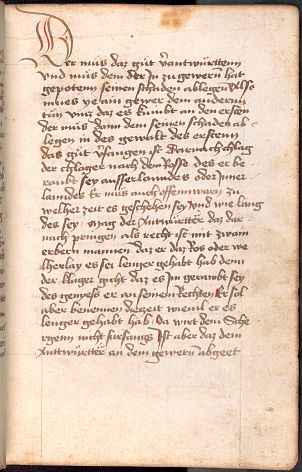 Der muͤs daz guͤt verantwürttenn
vnd muͤs dem der In zu gewern hat
gepotenn seinen schaden ablegen Also
mues ye ain gewer dem andernn
tun vnnz daz es kumbt an den ersten
der muͤs dann dem seinen schaden ab
legen in des gewalt des erstenn
das guͤt vfangen ist Darnach chlag
der chlager nach dem Rosß des er be
raubt sey ausser lanndes oder Inner
lanndes Er muͤs auch offennwarn zu
welher zeit es geschehen sey Vnd wie lang
des sey mag der Antwürtter daz dar
nach pringen als recht ist mit zwain
erbern mannen daz er daz Ros oder we
lherlay es sei lenger gehabt hab denn
der klager gicht daz es In geraubt sey
des genewst er an seinen Rechten Er sol
aber benennen die zeit wieuil er es
lenger gehabt hab Da wirt dem Sche
rgenn nicht fürfangs Ist aber daz dem
Antwürtter an dem gewern abgeet